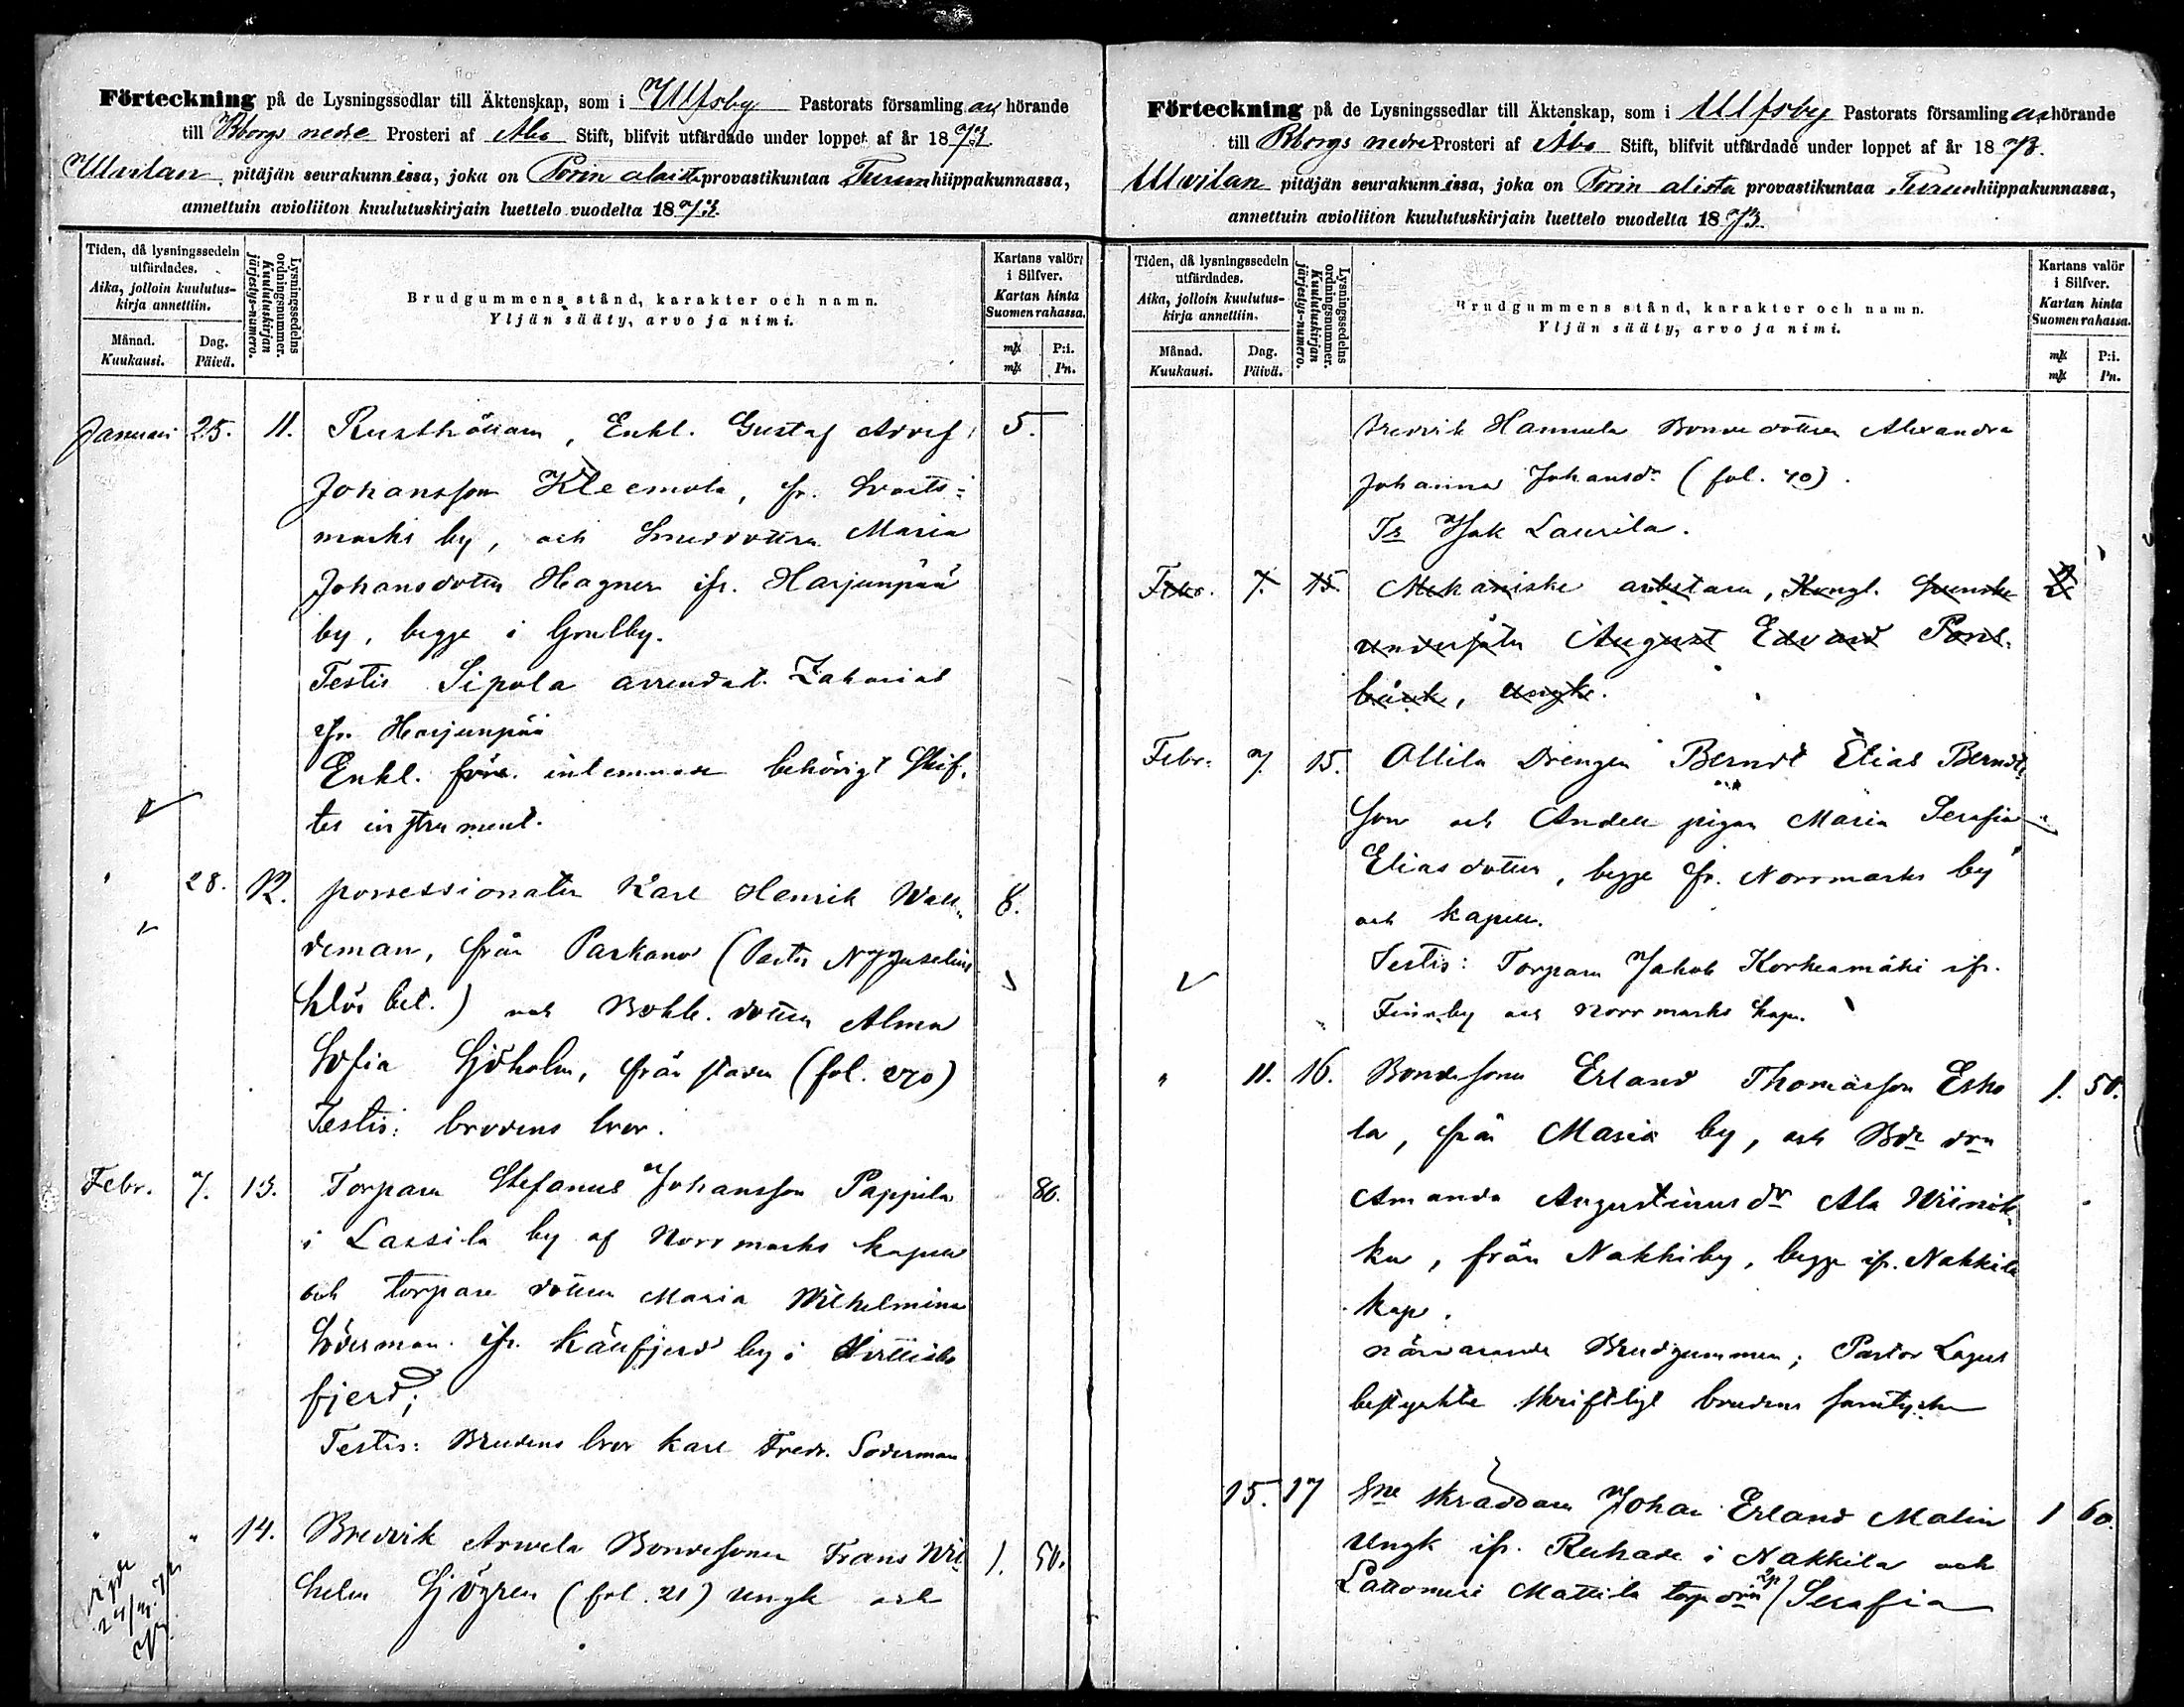 Förteckning på de Lysningssedlar till Äktenskap, som i Ulfsby Pastorats församling, hörande
till Bborgs nedre Prosteri af Åbo Stift, blifvit utfärdade under loppet af år 1873.
Ulvilan pitäjän seurakunnissa, joka on Porin alaista provastikuntaa Turun hiippakunnassa,
annettuin avioliiton kuulutuskirjain luettelo vuodelta 1873.
Tiden, då lysningssedeln utfärdades.
Aika, jolloin kuulutuskirja annettiin.
Månad.
Kuukausi.
Dag.
Päivä.
Lysningssedelns ordningsnummer.
Kuulutuskirjan järjestys-numero.
Brudgummens stånd, karakter och namn.
Yljän sääty, arvo ja nimi.
Kartans valör i Silfver.
Kartan hinta Suomen rahassa.
mk P:i.
mk Pn.
Januari 25. 11. Rusthållaren, Enkl. Gustaf Adolf 5.
Johansson Kleemola, fr. Svarts=
marks by, och Smedsdottren Maria
Johansdotter Hagner ifr. Harjunpää
by, begge i Grulby.
Testis Sipola arrendat. Zakarias
ifr. Harjunpää
Enkl. inlemnade behörigt Skif-
tes instrument.
" 28. 12. possessionaten Karl Henrik Wall- 8.
deman, från Parkano (Pastor Nyzelius
bet.) och Bokh. dottren Alma
Sofia Sjöholm, från staden (fol. 270)
Testis: brudens bror.
Febr. 7. 13. Torparen Stefanus Johansson Pappila 80.
i Lassila by af Norrmarks kapell
och torpare dottren Maria Wilhelmina
Söderman ifr. by i
fjerd;
Testis: Brudens bror Karl Fredr. Söderman
" " 14. Bredvik Arwela Bondesonen Frans Wil- 1. 50.
helm Sjögren (fol. 21) Ungk. och
vigde
Förteckning på de Lysningssedlar till Äktenskap, som i Ulfsby Pastorats församling hörande
till Bborgs nedre Prosteri af Åbo Stift, blifvit utfärdade under loppet af år 1873.
Ulvilan pitäjän seurakunnissa, joka on Porin alista provastikuntaa Turun hiippakunnassa,
annettuin avioliiton kuulutuskirjain luettelo vuodelta 1873.
Tiden, då lysningssedeln utfärdades.
Aika, jolloin kuulutuskirja annettiin.
Månad.
Kuukausi.
Dag.
Päivä.
Lysningssedelns ordningsnummer.
Kuulutuskirjan järjestys-numero.
Brudgummens stånd, karakter och namn.
Yljän sääty, arvo ja nimi.
Kartans valör i Silfver.
Kartan hinta Suomen rahassa.
mk P:i.
mk Pn.
Bredvik Hannula Bonde dottren Alexandra
Johanna Johansdr (fol. 40).
Ts Isak Laurila.
Febr. 7. 15. Mekaniske arbetaren, Kongl. Svenske 2
undersåten August Edvard Pors-
bäck, Ungk.
Febr. 7. 15. Ollila Drengen Berndt Elias Berndt-
son och Andell pigan Maria Serafia
Eliasdotter, begge fr. Norrmarks by
och kapell.
Testis: Torparen Jakob Korkeamäki ifr.
Finnby och Norrmarks kap.
" 11. 16. Bondesonen Erland Thomasson Esko 1. 50.
la, från Masia by, och Bde drn
Amanda Augustinusdr Ala Wiinik-
ka, från Nakkiby, begge ifr. Nakkila
kap.
närvarande Brudgummen; Pastor Lagus
betygte skriftligt brudens samtycke
15. 17 Sne skräddaren Johan Erland Malin 1 60.
Ungk ifr. Ruhade i Nakkila och
Lattomeri Mattila torp drn Serafia